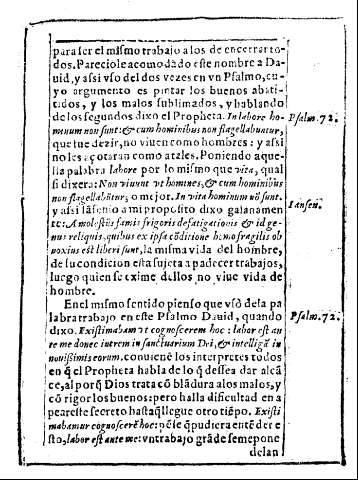 para ser el mismo trabajo a los de encerrar to-
dos. Pareciole acomodado este nombre a Da-
uid, y assi vso del dos vezes en vn Psalmo, cu-
yo argumento es pintar los buenos abati-
tidos, y los malos sublimados, y hablando
de los segundos dixo el Propheta. In labore ho-
Psalm. 72.
minum non sunt: & cum hominibus non flagellabuntur,
que fue dezir, no viuen como hombres: y assi
no les açotaran como a tales. Poniendo aque-
lla palabra labore por lo mismo que vita, qual
si dixera: Non viuunt vt homines, & cum hominibus
non flagellabũtur, o mejor. In vita hominum nõ sunt.
Iansen.
y assi Iãsenio a mi proposito dixo galanamen-
te: A molestijs famis frigoris defatigationis & id ge-
nus reliquis, quibus ex ipsa cõditione homo fragilis ob
noxius est liberi sunt, la misma vida del hombre,
de su condicion esta sujeta a padecer trabajos,
luego quien se exime dellos no viue vida de
hombre.
En el mismo sentido pienso que vsò de la pa
labra trabajo en este Psalmo Dauid, quando
Psalm. 72.
dixo. Existimabam vt cognoscerem hoc: labor est an
te me donec intrem in sanctuarium Dei, & intelligã in
nouissimis eorum. conuienẽ los interpretes todos
en q̃ el Propheta habla de lo q̃ dessea dar alcã
ce, al porq̃ Dios trata cõ blãdura a los malos, y
cõ rigor los buenos: pero halla dificultad en a
pear este secreto hasta q̃ llegue otro tiẽpo. Existi
mabam vt cognoscerẽ hoc: pẽse q̃ pudiera entẽder e
sto, labor est ante me: vn trabajo grãde se me pone
delan